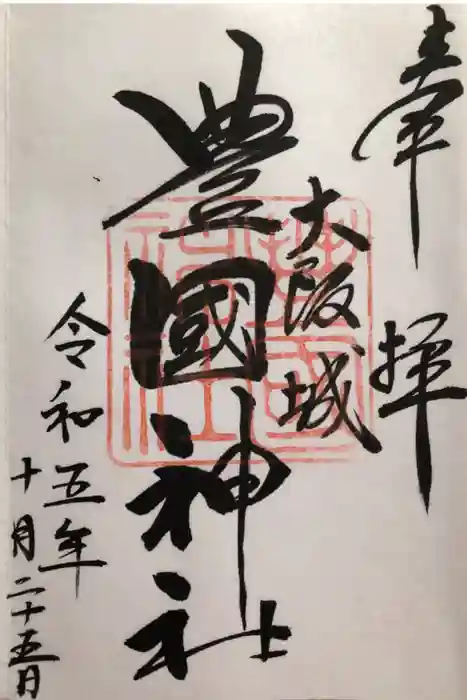 奉拝
大阪城
豊國神社
令和五年
十月二十五日